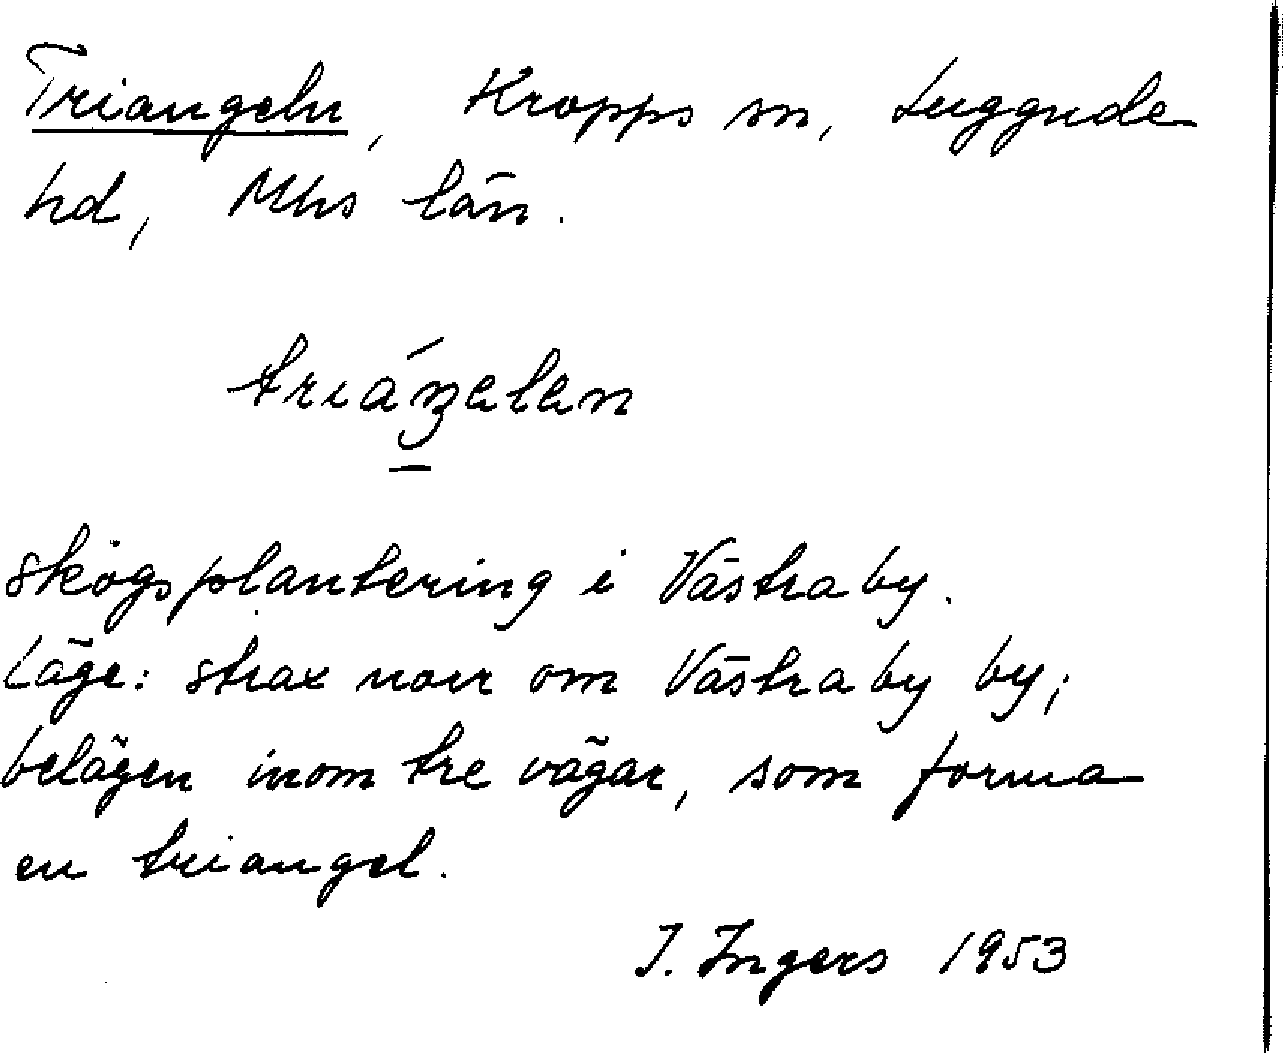 Triangeln, Kropps sn, Luggude
hd, Mhs län.
triáŋelen
skogsplantering i Västraby.
Läge: strax norr om Västraby by;
belägen inom tre vägar, som forma
en triangel.
I. Ingers 1953